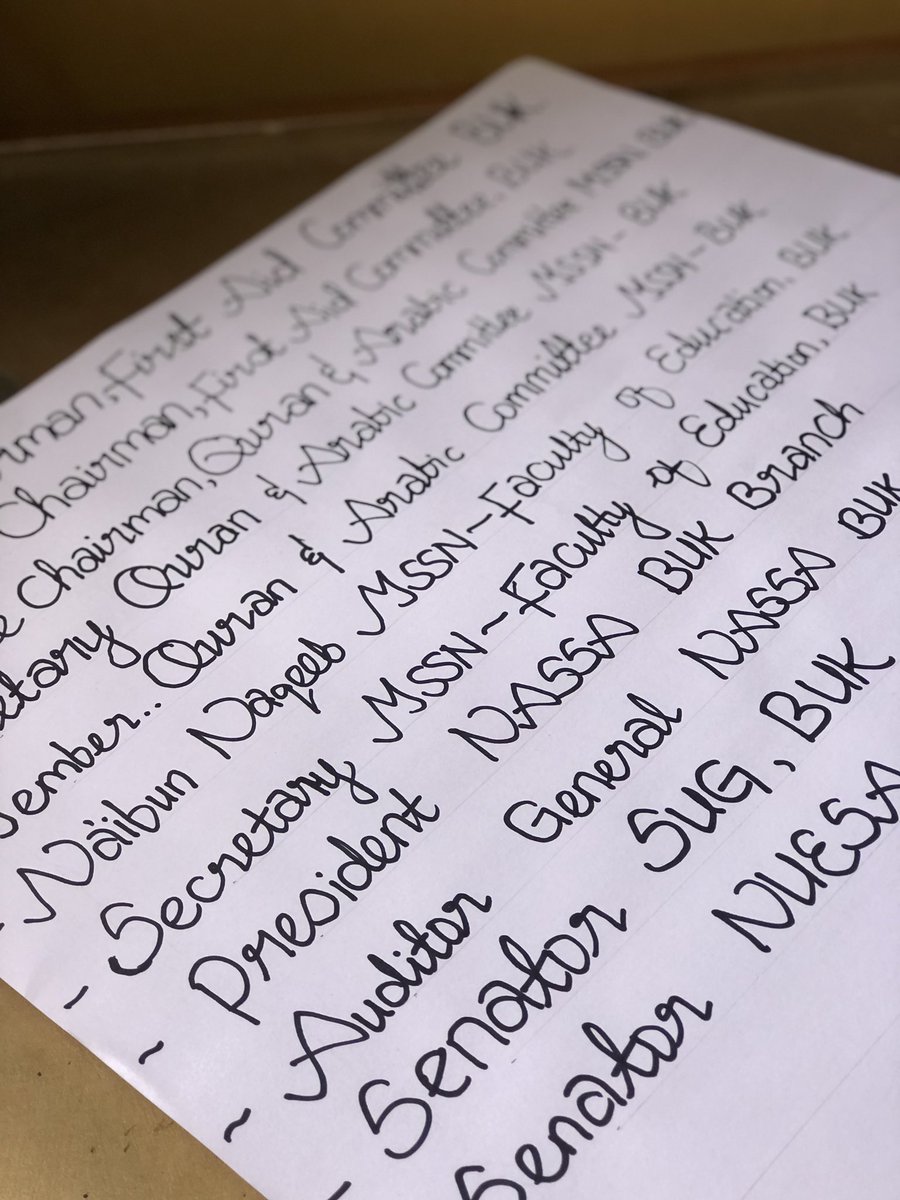 rman, First Aid Committee BUK
Chairman, First Aid Committee, BUK
e Chairman, Quran & Arabic Committee MSSN, BUK
etary Quran & Arabic Committee MSSN - BUK
ember.. Quran & Arabic Committee MSSN - BUK
- Na'ibun Naqeeb MSSN ~ Faculty of Education, BUK
~ Secretary MSSN ~ Faculty of Education, BUK
~ President NASSA BUK Branch
~ Auditor General NASSA BUK
- Senator SUG, BUK
Senator NUESA